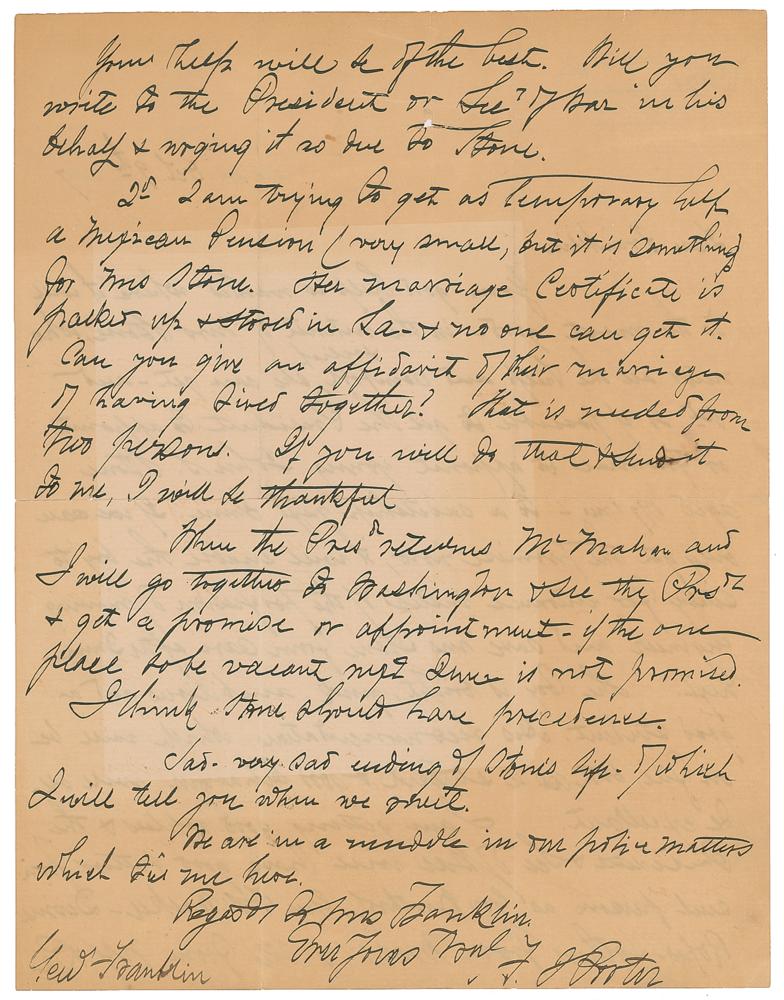 Your help will be of the best. Will you
write to the President or Secy of War in his
behalf & urging it as due to Stone.
2d I am trying to get as temporary help
a Mexican Pension (very small, but it is something)
for Mrs Stone. Her marriage Certificate is
packed up & stored in La- & no one can get it.
Can you give an affidavit of their marriage
of having lived together? That is needed from
two persons. If you will do that & send it
to me, I will be thankful
When the Presdt returns Mr Mahon and
I will go together to Washington & see the Prsdt
& get a promise or appointment - if the one
place to be vacant next June is not promised.
I think Stone should have precedence.
Sad - very sad ending of Stone's life - of which
I will tell you when we meet.
We are in a muddle in our police matters
which ties me here.
Regards to Mrs Franklin.
Ever Yours Truly
F. J Porter
Genl Franklin